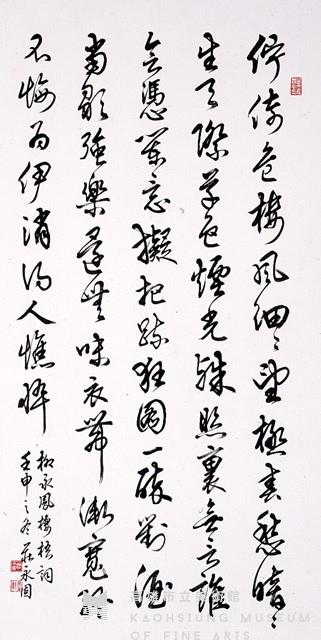 佇倚危樓風細〻望極春愁暗〻
生天際草色煙光殘照裏無言誰
會憑闌意擬把疏狂圖一醉對酒
當歌強樂還無味衣帶漸寬終
不悔為伊消得人憔悴
柳永鳳棲梧詞
壬申之冬莊永固
高雄市立美術館
KAOHSIUNG MUSEUM
OF FINE ARTS